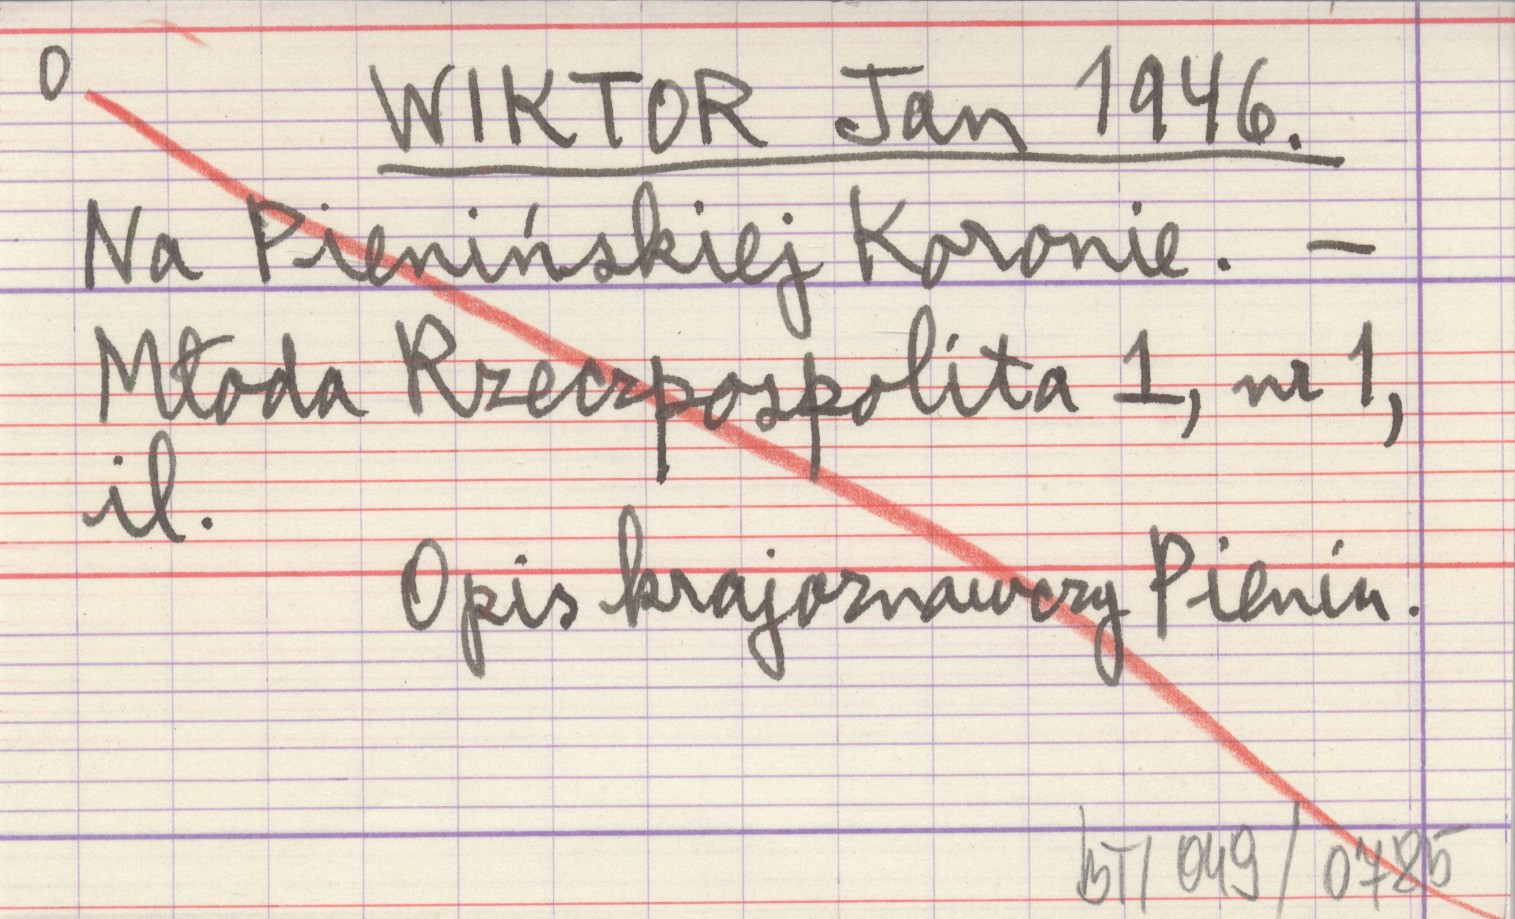 0 WIKTOR Jan 1946.
Na Pienińskiej Koronie. —
Młoda Rzeczpospolita 1, nr 1,
il.
Opis krajoznawczy Pienin.
049 / 0785